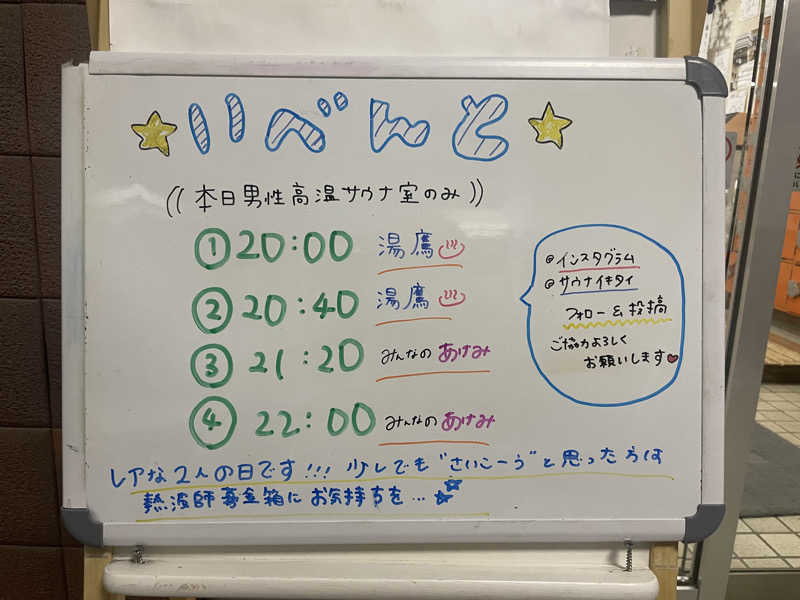 いべんと
((本日男性高温サウナ室のみ))
① 20:00 湯鷹♨
② 20:40 湯鷹♨
③ 21:20 みんなのあけみ
④ 22:00 みんなのあけみ
@インスタグラム
@サウナイキタイ
フォロー&投稿
ご協力よろしく
お願いします♥
レアな2人の日です!!! 少しでも"さいこーう"と思った方は
熱波師募金箱にお気持ちを…